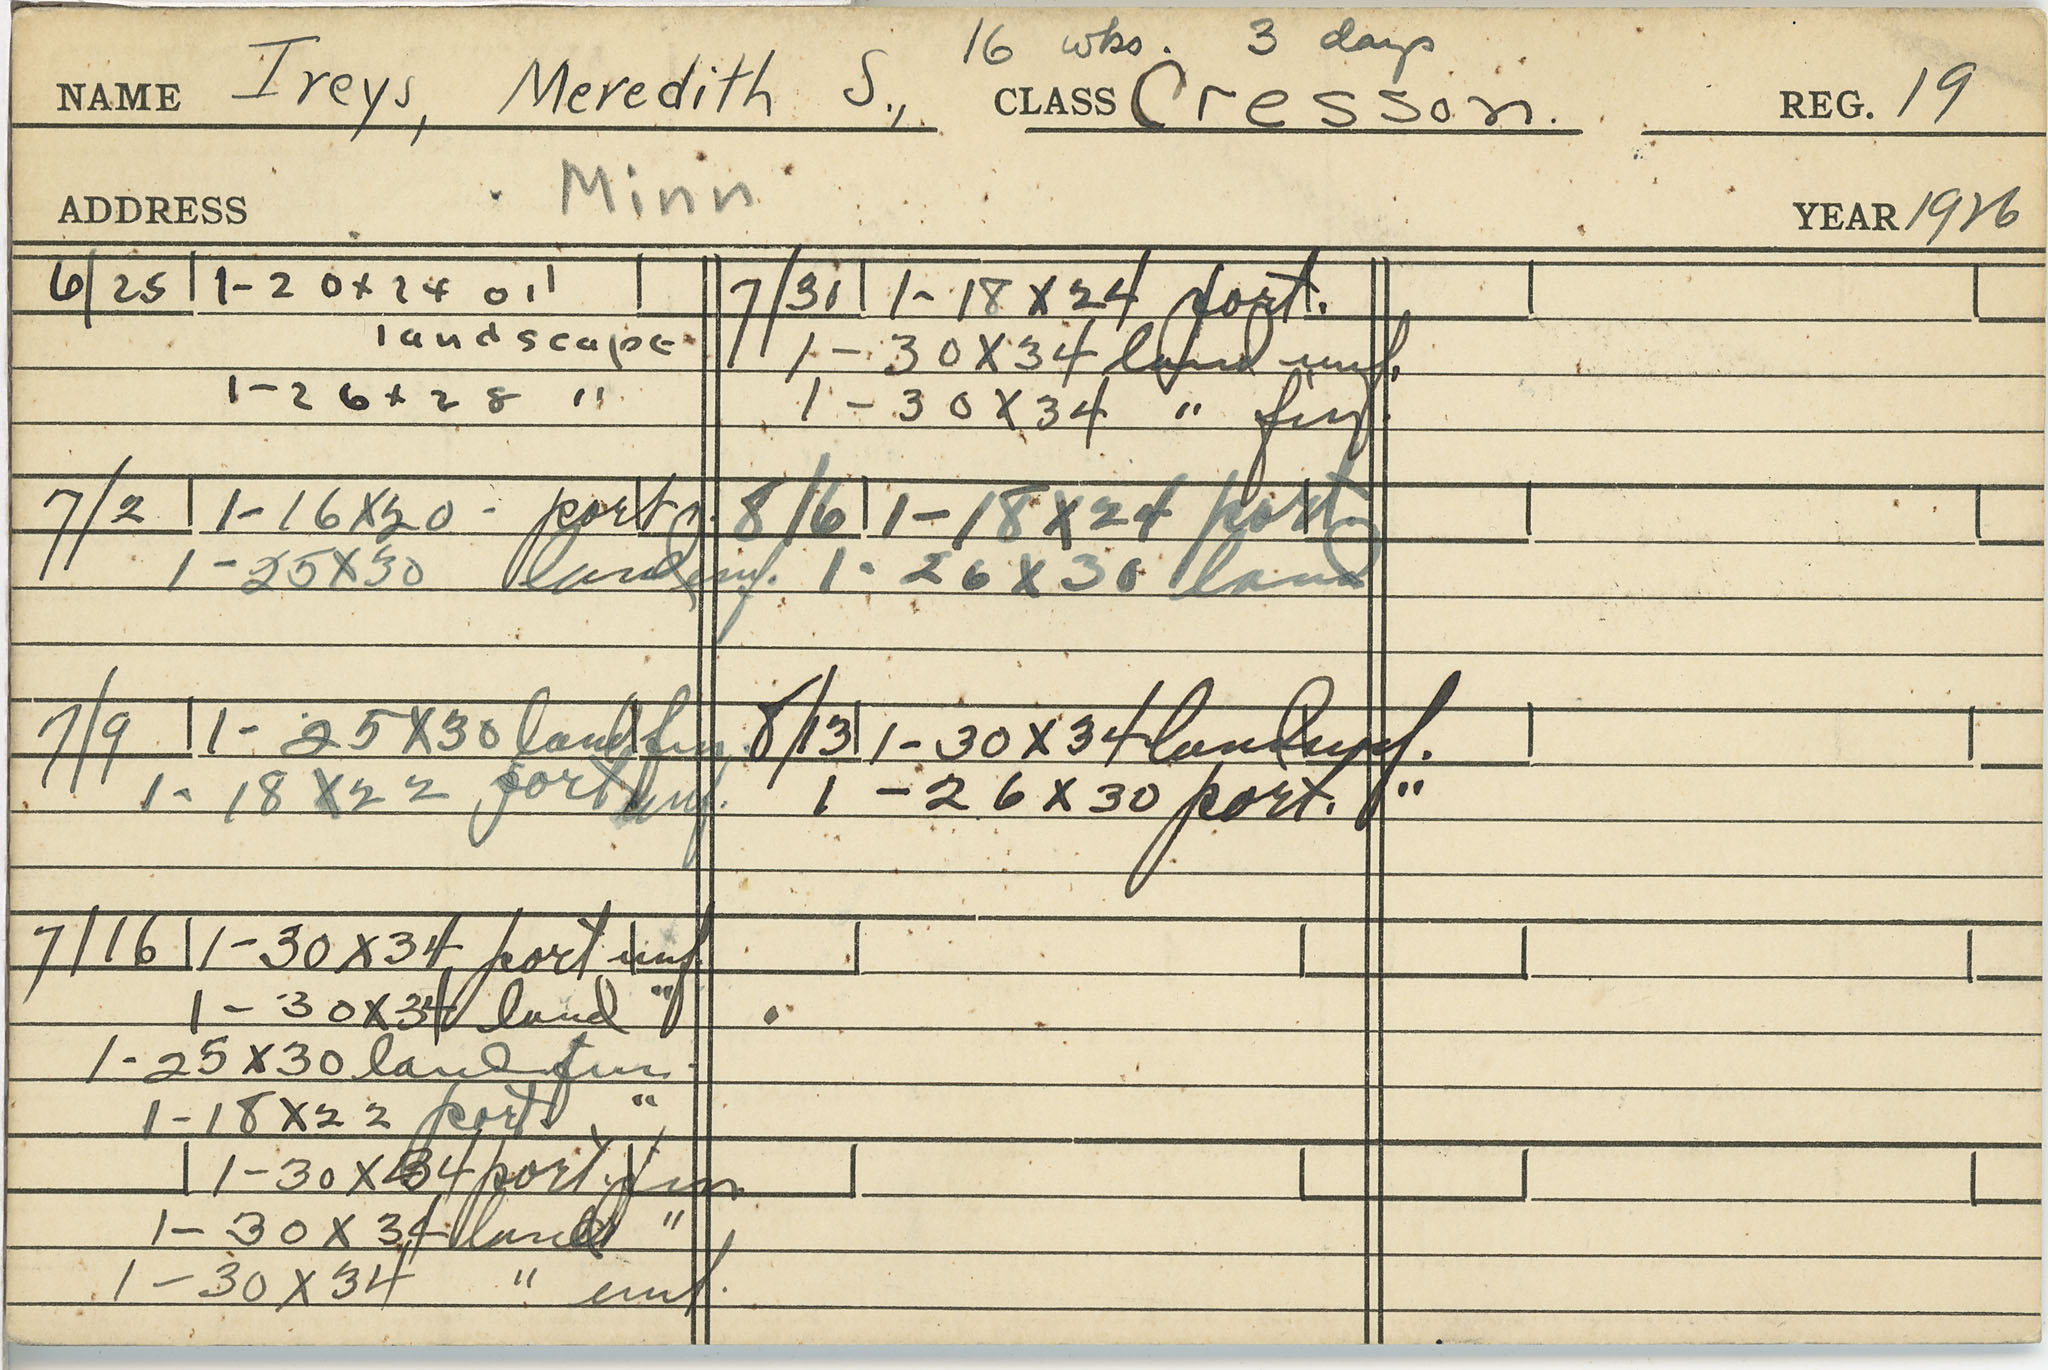 16 wks. 3 days
NAME Ireys, Meredith S., CLASS Cresson. REG. 19
ADDRESS Minn YEAR 1926
6/25 1-20x24 oil
landscape
1-26x28 "
7/2 1-16x20 - port
1-25x30 land unf.
7/9 1-25x30 land fin.
1-18x22 port unf.
7/16 1-30x34 port unf.
1-30x34 land "
1-25x30 land fin.
1-18x22 port. "
1-30x34 port. fin
1-30x34 land "
1-30x34 " unf.
7/31 1-18x24 port.
1-30x34 land unf.
1-30x34 " fin.
8/6 1-18x24 port
1-26x30 land
8/13 1-30x34 land unf.
1-26x30 port. "